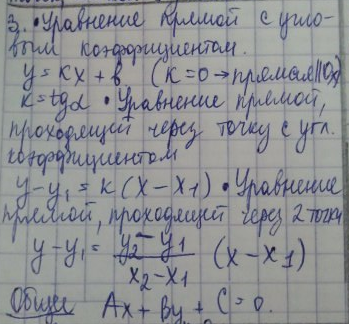 3. • Уравнение прямой с угло-
вым коэффициентом.
y = kx + b (k=0 → прямая || Ox)
k = tgα • Уравнение прямой,
проходящей через точку с угл.
коэффициентом
y - y₁ = k (x - x₁) • Уравнение
прямой, проходящей через 2 точки
y - y₁ = (y₂ - y₁)/(x₂ - x₁) (x - x₁)
Общее Ax + By + C = 0.